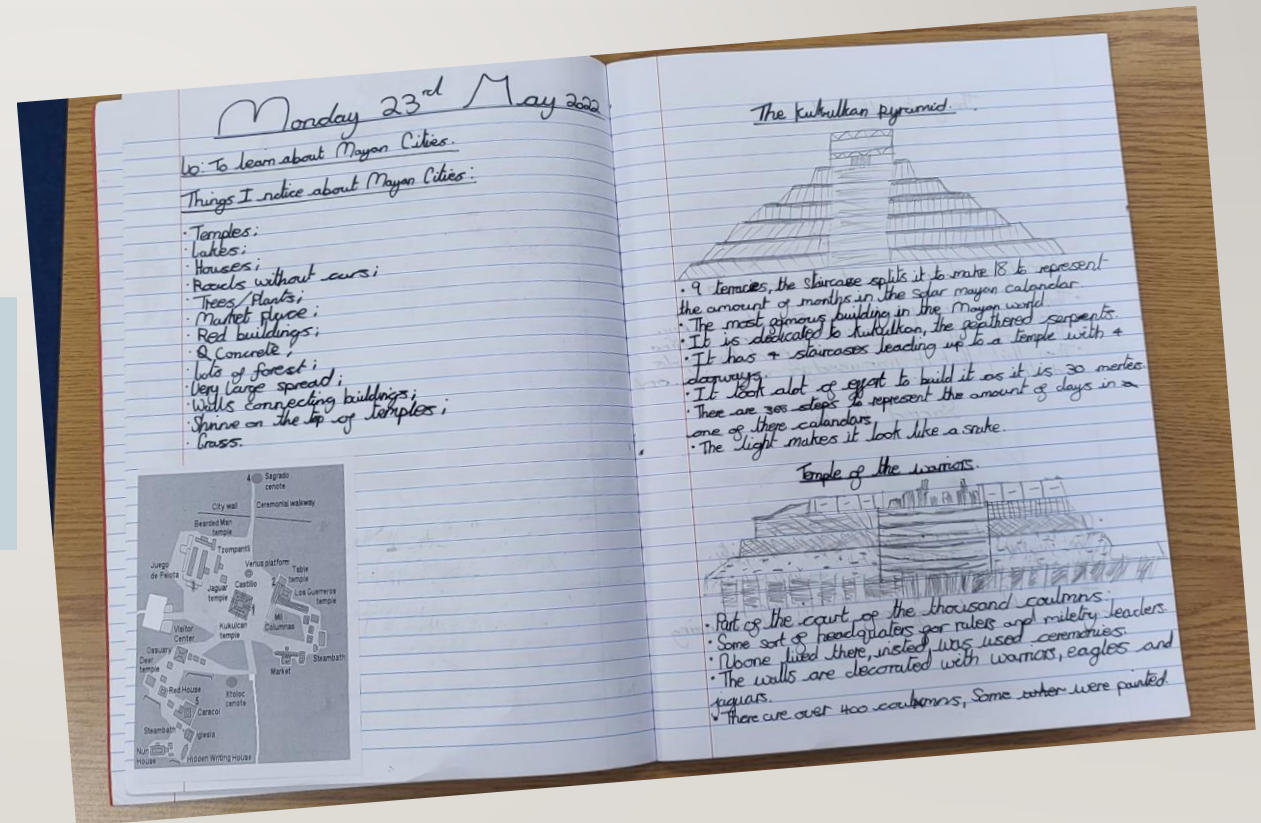 Monday 23rd May 2022
Lo: To learn about Mayan Cities.
Things I notice about Mayan Cities:
· Temples;
· Lakes;
· Houses;
· Roads without cars;
· Trees/Plants;
· Market place;
· Red buildings;
· Concrete;
· Lots of forest;
· Very large spread;
· Walls connecting buildings;
· Shrine on the top of temples;
· Grass.
4 Sagrado
cenote
City wall Ceremonial walkway
Bearded Man
temple
Tzompantli
Juego
de Pelota
Venus platform
Table
temple
Castillo
2
Jaguar
temple
3
1
Los Guerreros
temple
Mil
Columnas
Kukulcan
temple
Visitor
Center
Steambath
Market
Ossuary
Deer
temple
Red House
Xtoloc
cenote
5
Caracol
Steambath
Iglesia
Nun
House
Hidden Writing House
The Kukulkan pyramid.
· 9 terraces, the staircase splits it to make 18 to represent
the amount of months in the solar mayan calandar.
· The most famous building in the Mayan world
· It is dedicated to Kukulkan, the feathered serpents.
· It has 4 staircases leading up to a temple with 4
doorways.
· It took alot of effort to build it as it is 30 metres.
· There are 365 steps to represent the amount of days in a
one of there calandars
· The light makes it look like a snake.
Temple of the warriors.
· Part of the court of the thousand coulmns.
· Some sort of headquaters for rulers and miletry leaders.
· Noone lived there, visted, was used ceremonies.
· The walls are decorated with warriors, eagles and
jaguars.
· There are over 400 coulumns, Some were painted.